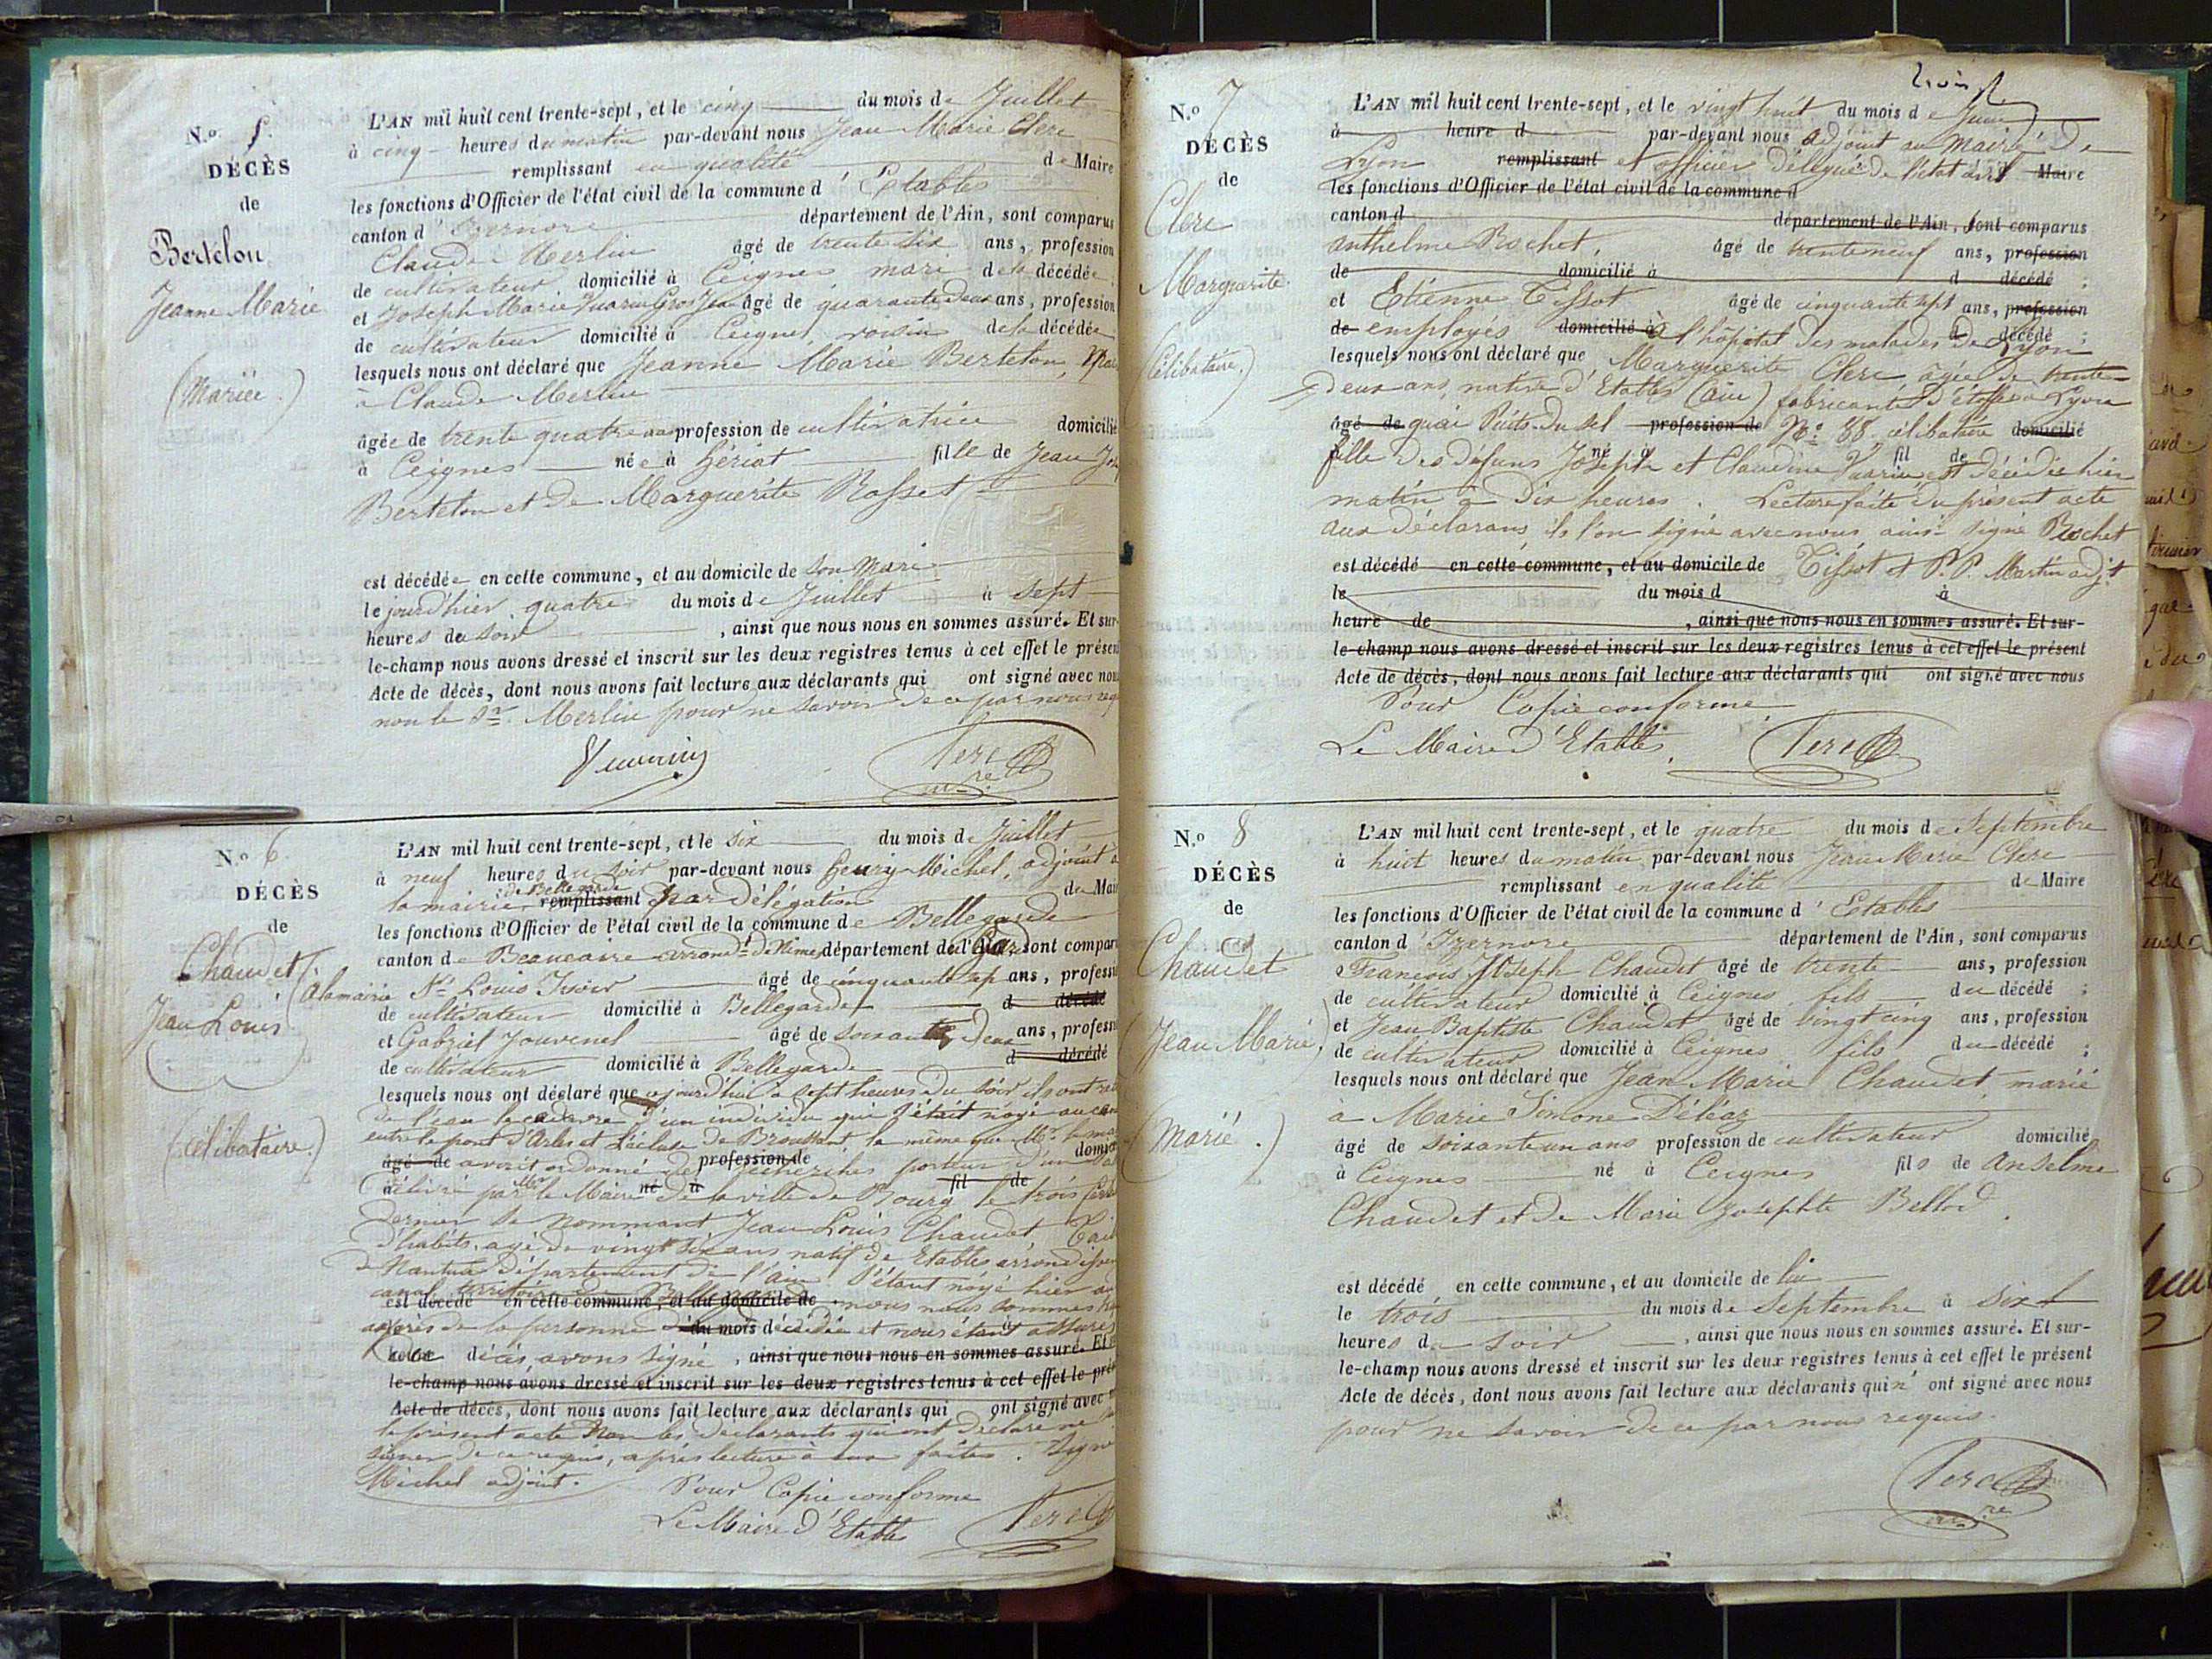 N.º 5.
DÉCÈS
de
Bertelon
Jeanne Marie
(Mariée.)
L'AN mil huit cent trente-sept, et le cinq du mois de Juillet
à cinq heures du matin par-devant nous Jean Marie Clerc
remplissant en qualité de Maire
les fonctions d'Officier de l'état civil de la commune d'Etables
canton d'Izernore département de l'Ain, sont comparus
Claude Merlin âgé de trente six ans, profession
de cultivateur domicilié à Ceignes mari de la décédée
et Joseph Marie Vuarin Gros Jean âgé de quarante deux ans, profession
de cultivateur domicilié à Ceignes, voisin de la décédée
lesquels nous ont déclaré que Jeanne Marie Bertelon,
à Claude Merlin
âgée de trente quatre ans profession de cultivatrice domicilié
à Ceignes née à hériat fille de Jean
Bertelon et de Marguerite Rosset
est décédée en cette commune, et au domicile de son mari
le jourd'hier quatre du mois de Juillet à sept
heures du soir, ainsi que nous nous en sommes assuré. Et sur-
le-champ nous avons dressé et inscrit sur les deux registres tenus à cet effet le présent
Acte de décès, dont nous avons fait lecture aux déclarants qui ont signé avec nous
non le Sr. Merlin pour ne savoir de ce par nous
Vuarin Clerc
N.º 6.
DÉCÈS
de
Chaudet
Jean Louis
(célibataire.)
L'AN mil huit cent trente-sept, et le six du mois de Juillet
à neuf heures du soir par-devant nous henry Michel, adjoint à
la mairie de Bellegarde remplissant par délégation de Maire
les fonctions d'Officier de l'état civil de la commune de Bellegarde
canton de Beaucaire arrondt de Nimes département du Gard sont comparus
à la mairie Sr Louis âgé de cinquante sept ans, profession
de cultivateur domicilié à Bellegarde d décédé
et Gabriel Jouvenel âgé de soixante deux ans, profession
de cultivateur domicilié à Bellegarde d décédé
lesquels nous ont déclaré que ajourd'hui à sept heures du soir ils ont
de l'eau le cadavre d'un individu qui s'était noyé au
entre le pont d'Arles et l'écluse de Broussant le même que Mr
âgé de avoit ordonné de profession de recherches porteur d'un
délivré par Mr le Maire né à de la ville de Bourg fil de le trois
dernier se nommant Jean Louis Chaudet
d'habits, agé de vingt six ans natif de Etables
de Nantua département de l'ain, s'étant noyé hier au
canal territoire de Bellegarde
est décédé en cette commune, et au domicile de nous nous sommes
auprès de la personne du mois décédée et nous étant assurés
décès, avons signé, ainsi que nous nous en sommes assuré. Et
le-champ nous avons dressé et inscrit sur les deux registres tenus à cet effet le
Acte de décès, dont nous avons fait lecture aux déclarants qui ont signé avec
le présent acte non les déclarants qui ont déclaré ne
signer de ce requis, après lecture à eux faites. Signé
Michel adjoint.
Pour Copie conforme
Le Maire d'Etables Clerc
N.º 7
DÉCÈS
de
Clerc
Marguerite
(Célibataire.)
L'AN mil huit cent trente-sept, et le vingt huit du mois de Juin
à heure d par-devant nous adjoint au Maire de
Lyon remplissant et officier délégué de l'état civil Maire
les fonctions d'Officier de l'état civil de la commune d
canton d département de l'Ain, sont comparus
anthelme Rochet, âgé de trente neuf ans, profession
de domicilié à d décédé ;
et Etienne Tissot âgé de cinquante sept ans, profession
de employés domicilié à à l'hôpital des malades de Lyon d décédé ;
lesquels nous ont déclaré que Marguerite Clerc âgée de trente
deux ans, native d'Etables (ain) fabricante d'étoffes à Lyon
âgé de quai Puits du Sel profession de No 88 célibataire domicilié
fille des défuns né à Joseph et Claudine Vuarin fil de est décédée hier
matin à dix heures. Lecture faite du présent acte
aux déclarans ils l'on signé avec nous ainsi signé Rochet
est décédé en cette commune, et au domicile de Tissot et P. P. Martin adjt
le du mois d à
heure de, ainsi que nous nous en sommes assuré. Et sur-
le-champ nous avons dressé et inscrit sur les deux registres tenus à cet effet le présent
Acte de décès, dont nous avons fait lecture aux déclarants qui ont signé avec nous
Pour Copie conforme
Le Maire d'Etables, Clerc
N.º 8
DÉCÈS
de
Chaudet
(Jean Marie)
(Marié.)
L'AN mil huit cent trente-sept, et le quatre du mois de Septembre
à huit heures du matin par-devant nous Jean Marie Clerc
remplissant en qualité de Maire
les fonctions d'Officier de l'état civil de la commune d'Etables
canton d'Izernore département de l'Ain, sont comparus
François Joseph Chaudet âgé de trente ans, profession
de cultivateur domicilié à Ceignes fils du décédé ;
et Jean Baptiste Chaudet âgé de vingt cinq ans, profession
de cultivateur domicilié à Ceignes fils du décédé ;
lesquels nous ont déclaré que Jean Marie Chaudet marié
à Marie Simone Déléaz
âgé de soixante un ans profession de cultivateur domicilié
à Ceignes né à Ceignes fils de Anselme
Chaudet et de Marie Josephte Bellod.
est décédé en cette commune, et au domicile de lui
le trois du mois de Septembre à
heures du soir, ainsi que nous nous en sommes assuré. Et sur-
le-champ nous avons dressé et inscrit sur les deux registres tenus à cet effet le présent
Acte de décès, dont nous avons fait lecture aux déclarants qui n'ont signé avec nous
pour ne savoir de ce par nous requis.
Clerc